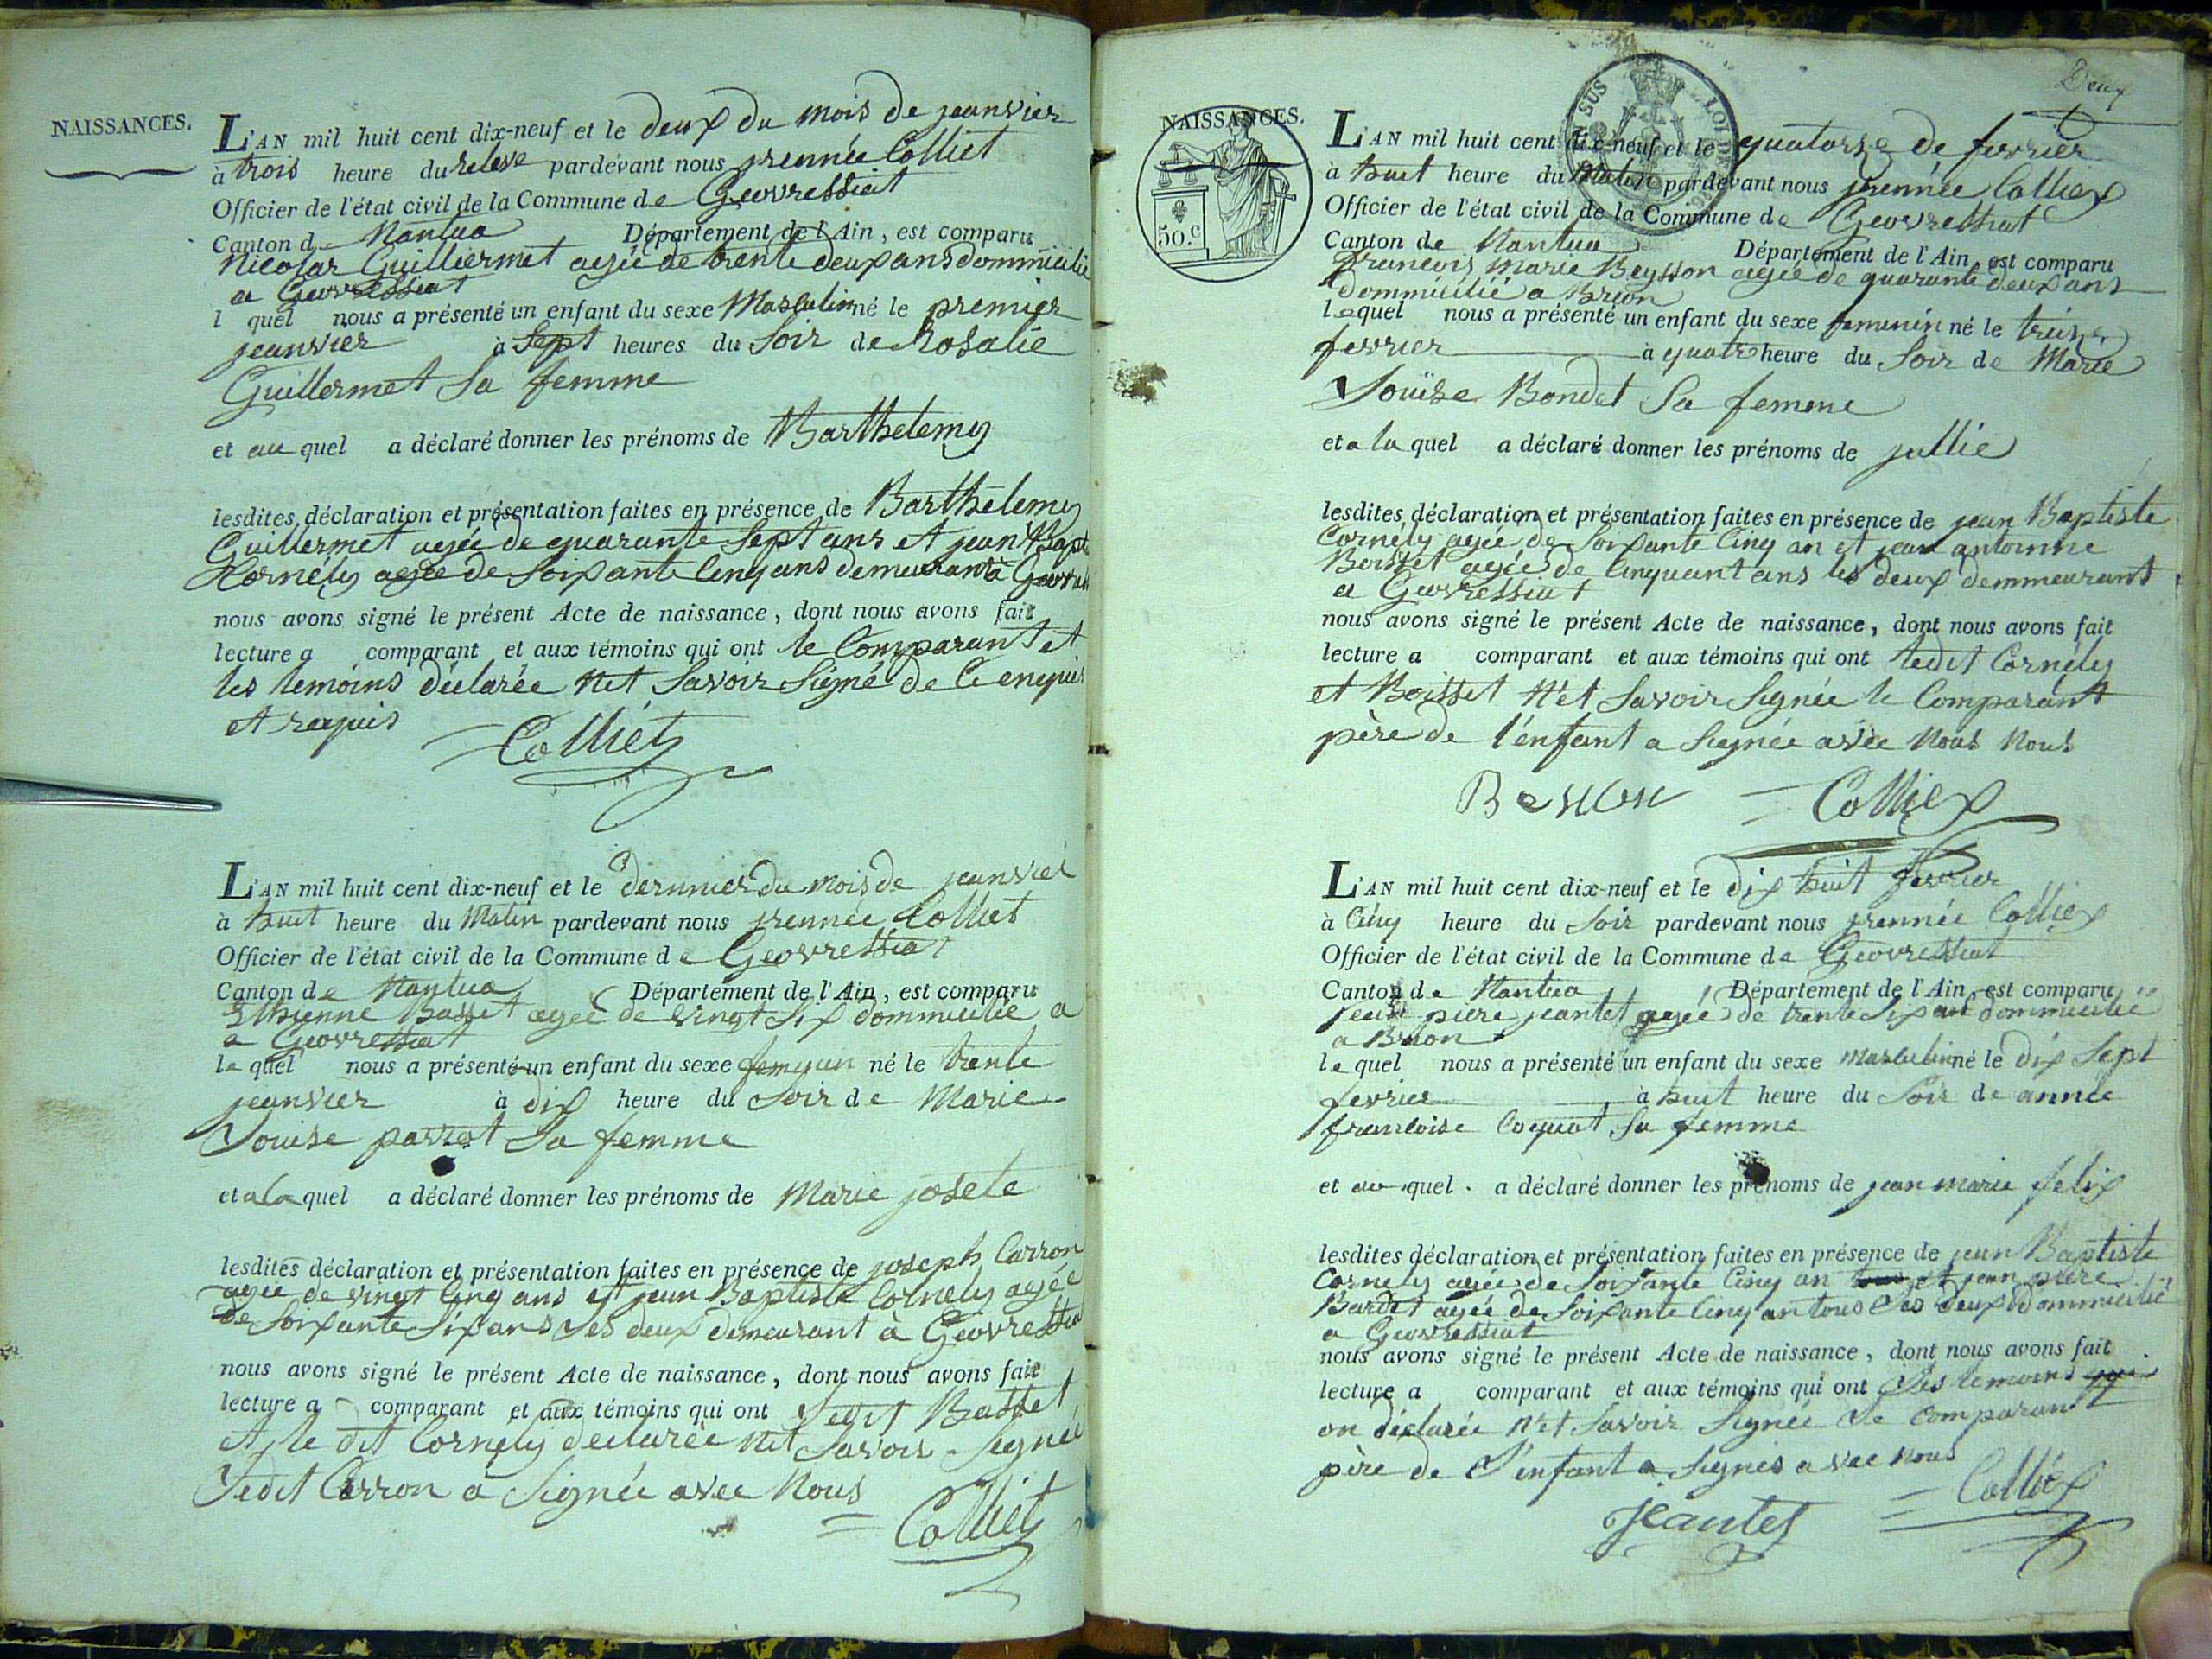 NAISSANCES.
L'AN mil huit cent dix-neuf et le deux du mois de jeanvier
à trois heure du releve pardevant nous prennée Colliet
Officier de l'état civil de la Commune de Geovressiat
Canton de Nantua Département de l'Ain, est comparu
Nicolas Guillermet agée de trente deux ans dommicilie
a Geovressiat
l quel nous a présenté un enfant du sexe Masculin né le premier
jeanvier à Sept heures du Soir de Rosalie
Guillermet Sa femme
et au quel a déclaré donner les prénoms de Barthelemy
lesdites déclaration et présentation faites en présence de Barthelemy
Guillermet agée de quarante Sept ans et jean Bapt
Cornély agée de Soixante Cinq ans demeurant à
nous avons signé le présent Acte de naissance, dont nous avons fait
lecture a comparant et aux témoins qui ont le Comparant et
les temoins déclarée net Savoir Signé de Ce enquis
et requis
Colliet
L'AN mil huit cent dix-neuf et le dernnier du mois de jeanvier
à huit heure du Matin pardevant nous prennée Colliet
Officier de l'état civil de la Commune de Geovressiat
Canton de Nantua Département de l'Ain, est comparu
Ethienne Basset agée de vingt Six dommicilie a
a Geovressiat
le quel nous a présenté un enfant du sexe né le trente
jeanvier à dix heure du Soir de Marie
Louise parrot Sa femme
et a la quel a déclaré donner les prénoms de Marie josete
lesdites déclaration et présentation faites en présence de joseph Carron
agée de vingt Cinq ans et jean Baptiste Cornely agée
de Soixante Six ans Les deux demeurant à Geovressia
nous avons signé le présent Acte de naissance, dont nous avons fait
lecture a comparant et aux témoins qui ont Ledit Basset
et le dit Cornely declarée net Savoir Signée
Ledit Carron a Signée avec Nous
Colliet
Deux
SUS LOI DE
NAISSANCES.
50.c
L'AN mil huit cent dix-neuf et le quatorze de fevrier
à huit heure du Matin pardevant nous prennée Colliex
Officier de l'état civil de la Commune de Geovressiat
Canton de Nantua Département de l'Ain, est comparu
francois Marie Beysson agée de quarante deux ans
dommicilié a Brion
lequel nous a présenté un enfant du sexe femenin né le treize
fevrier à quatre heure du Soir de Marie
Louise Bondet Sa femme
et a la quel a déclaré donner les prénoms de jullie
lesdites déclaration et présentation faites en présence de jean Baptiste
Cornély agée de Soixante Cinq an et jean antoinne
Boisset agée de Cinquant ans les deux demmeurant
a Geovressiat
nous avons signé le présent Acte de naissance, dont nous avons fait
lecture a comparant et aux témoins qui ont ledit Cornély
et Boisset N'et Savoir Signée le Comparant
père de l'enfant a Signée avec Nous Nous
Colliex
L'AN mil huit cent dix-neuf et le dix huit fevrier
à Cinq heure du Soir pardevant nous prennée Colliex
Officier de l'état civil de la Commune de Geovressiat
Canton de Nantua Département de l'Ain, est comparu
jean piere jeantet agée de trente Six an dommicilié
a Brion
le quel nous a présenté un enfant du sexe Masculin né le dix Sept
fevrier à huit heure du Soir de année
francoise Coquat Sa femme
et au quel a déclaré donner les prénoms de jean marie felix
lesdites déclaration et présentation faites en présence de jean Baptiste
Cornely agée de Soixante Cinq an et jean piere
Bardet agée de Soixante Cinq an tous Les deux dommicilié
a Geovressiat
nous avons signé le présent Acte de naissance, dont nous avons fait
lecture a comparant et aux témoins qui ont Les temoins qui
on déclarée n'et Savoir Signée Le Comparant
père de L'enfant a Signés avec nous
jeantet Colliex